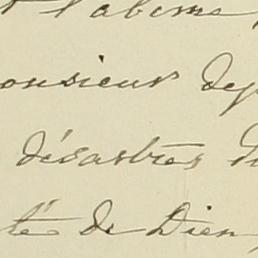 t l'abîme
onsieur dep
désastres d
té de Dieu,